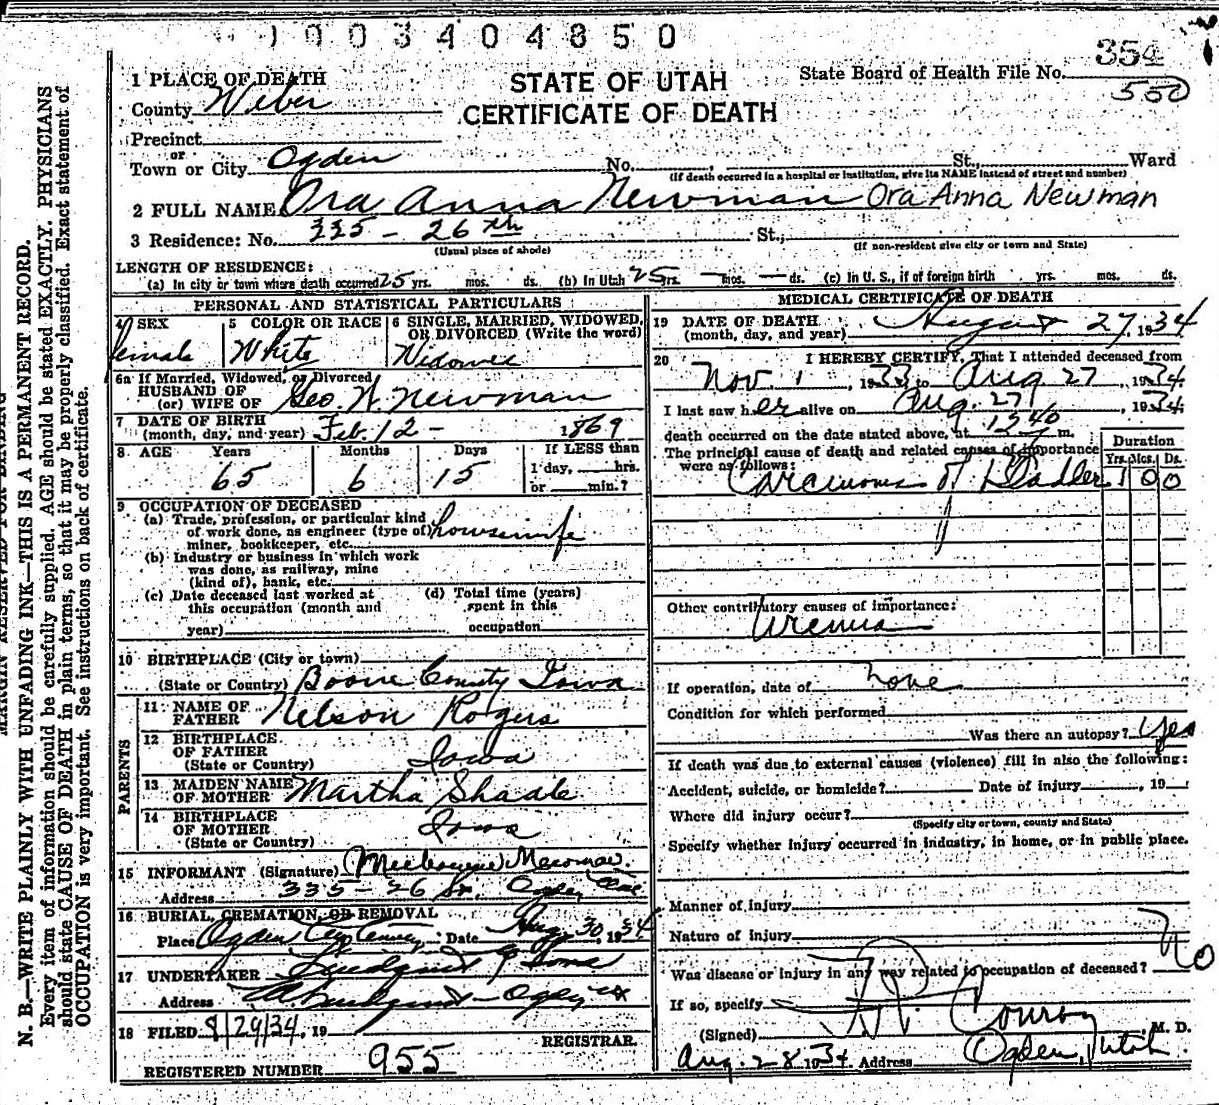 1003404850
STATE OF UTAH
CERTIFICATE OF DEATH
State Board of Health File No. 354
550
1 PLACE OF DEATH
County Weber
Precinct
or
Town or City Ogden No. , St., Ward
(If death occurred in a hospital or institution, give its NAME instead of street and number)
2 FULL NAME Ora Anna Newman Ora Anna Newman
3 Residence: No. 335 - 26th St.,
(Usual place of abode) (If non-resident give city or town and State)
LENGTH OF RESIDENCE:
(a) In city or town where death occurred 25 yrs. mos. ds. (b) In Utah 25 yrs. — mos. — ds. (c) In U. S., if of foreign birth yrs. mos. ds.
PERSONAL AND STATISTICAL PARTICULARS
4 SEX female
5 COLOR OR RACE White
6 SINGLE, MARRIED, WIDOWED, OR DIVORCED (Write the word) Widowed
6a If Married, Widowed, or Divorced
HUSBAND OF
(or) WIFE OF Geo. W. Newman
7 DATE OF BIRTH
(month, day, and year) Feb. 12 - 1869
8 AGE Years Months Days If LESS than
65 6 15 1 day, hrs.
or min.?
9 OCCUPATION OF DECEASED
(a) Trade, profession, or particular kind
of work done, as engineer (type of) housewife
miner, bookkeeper, etc.
(b) Industry or business in which work
was done, as railway, mine
(kind of), bank, etc.
(c) Date deceased last worked at
this occupation (month and
year)
(d) Total time (years)
spent in this
occupation
10 BIRTHPLACE (City or town)
(State or Country) Boone County Iowa
PARENTS
11 NAME OF
FATHER Nelson Rogers
12 BIRTHPLACE
OF FATHER
(State or Country) Iowa
13 MAIDEN NAME
OF MOTHER Martha Shadle
14 BIRTHPLACE
OF MOTHER
(State or Country) Iowa
15 INFORMANT (Signature)
Address 335 - 26 St. Ogden
16 BURIAL, CREMATION, OR REMOVAL
Place Ogden City Cemetery Date Aug. 30, 1934
17 UNDERTAKER Lindquist & Sons
Address Ogden
18 FILED 8/29/34, 19
REGISTRAR.
REGISTERED NUMBER 955
MEDICAL CERTIFICATE OF DEATH
19 DATE OF DEATH
(month, day, and year) August 27, 1934
20 I HEREBY CERTIFY, That I attended deceased from
Nov. 1, 1933, to Aug 27, 1934
I last saw her alive on Aug. 27, 1934
death occurred on the date stated above, at m.
The principal cause of death and related causes of importance
were as follows:
Duration
Yrs. Mos. Ds.
Carcinoma of Bladder 1 0 0
Other contributory causes of importance:
Uremia
If operation, date of None
Condition for which performed
Was there an autopsy? Yes
If death was due to external causes (violence) fill in also the following:
Accident, suicide, or homicide? Date of injury , 19
Where did injury occur?
(Specify city or town, county and State)
Specify whether injury occurred in industry, in home, or in public place.
Manner of injury
Nature of injury
Was disease or injury in any way related to occupation of deceased? No
If so, specify
(Signed) Conroy, M. D.
Aug. 28 1934. Address Ogden, Utah.
N. B.—WRITE PLAINLY WITH UNFADING INK—THIS IS A PERMANENT RECORD.
Every item of information should be carefully supplied. AGE should be stated EXACTLY. PHYSICIANS
should state CAUSE OF DEATH in plain terms, so that it may be properly classified. Exact statement of
OCCUPATION is very important. See instructions on back of certificate.